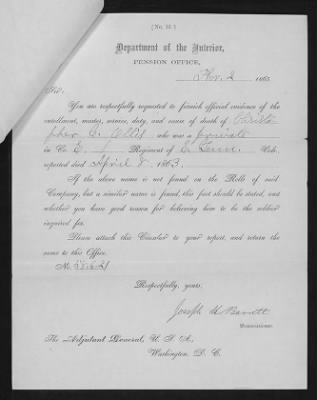 [No. 10.]
Department of the Interior,
PENSION OFFICE,
Nov. 2 1863
Sir:
You are respectfully requested to furnish official evidence of the
enrollment, muster, service, duty, and cause of death of Christo
pher C. Ellis who was a private
in Co. E, 1 Regiment of E. Tenn. Vols.
reported died April 8. 1863.
If the above name is not found on the Rolls of said
Company, but a similar name is found, this fact should be stated, and
whether you have good reason for believing him to be the soldier
inquired for.
Please attach this Circular to your report, and return
the same to this Office.
Respectfully, yours,
Joseph H Barrett
Commissioner.
The Adjutant General, U. S. A.,
Washington, D. C.